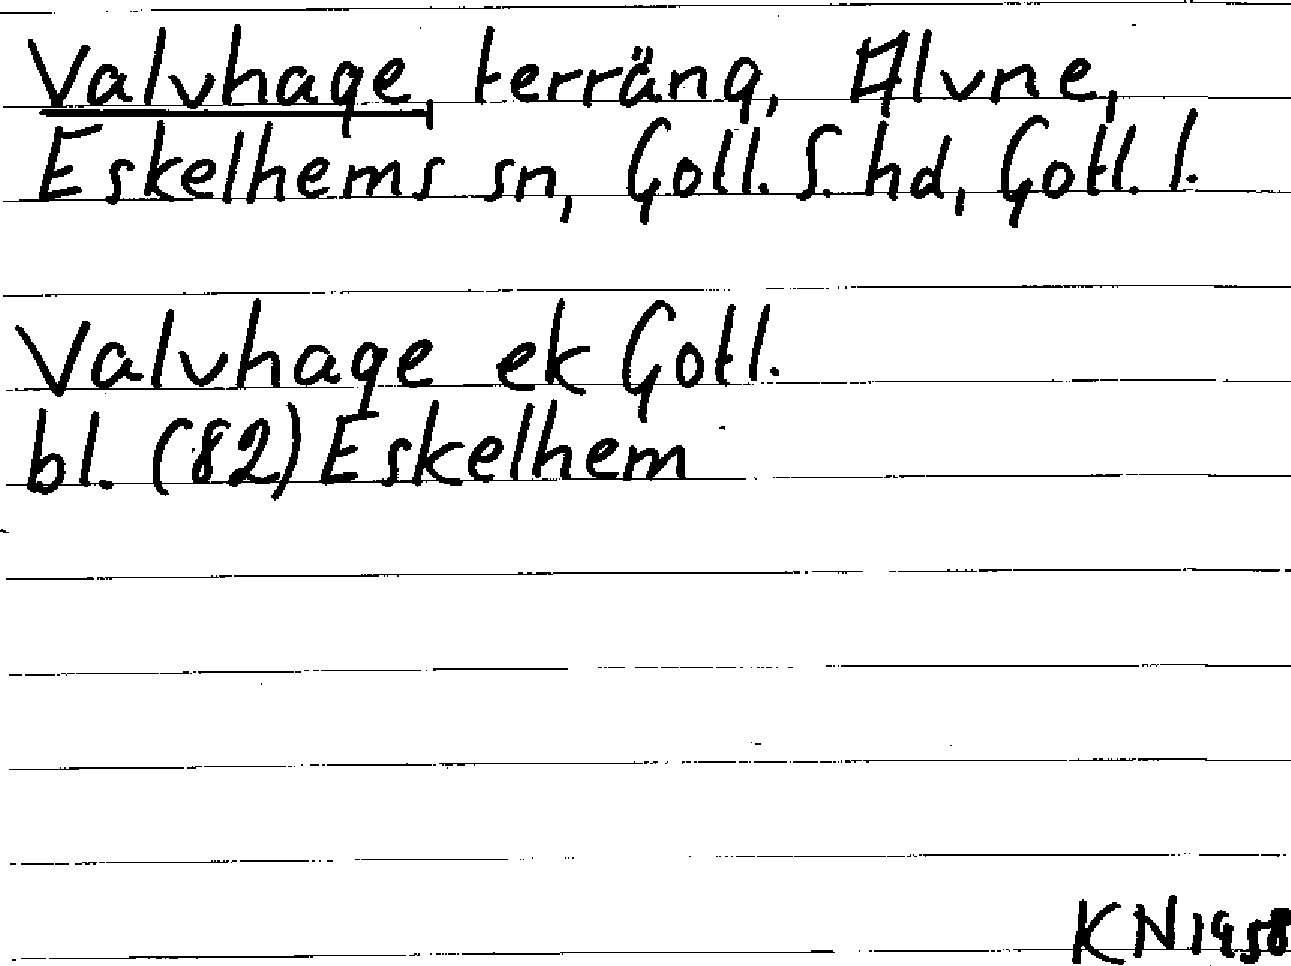 Valvhage, terräng, Alvne,
Eskelhems sn, Gotl. S. hd, Gotl. l.
Valvhage ek Gotl.
bl. (82) Eskelhem
KN 1958